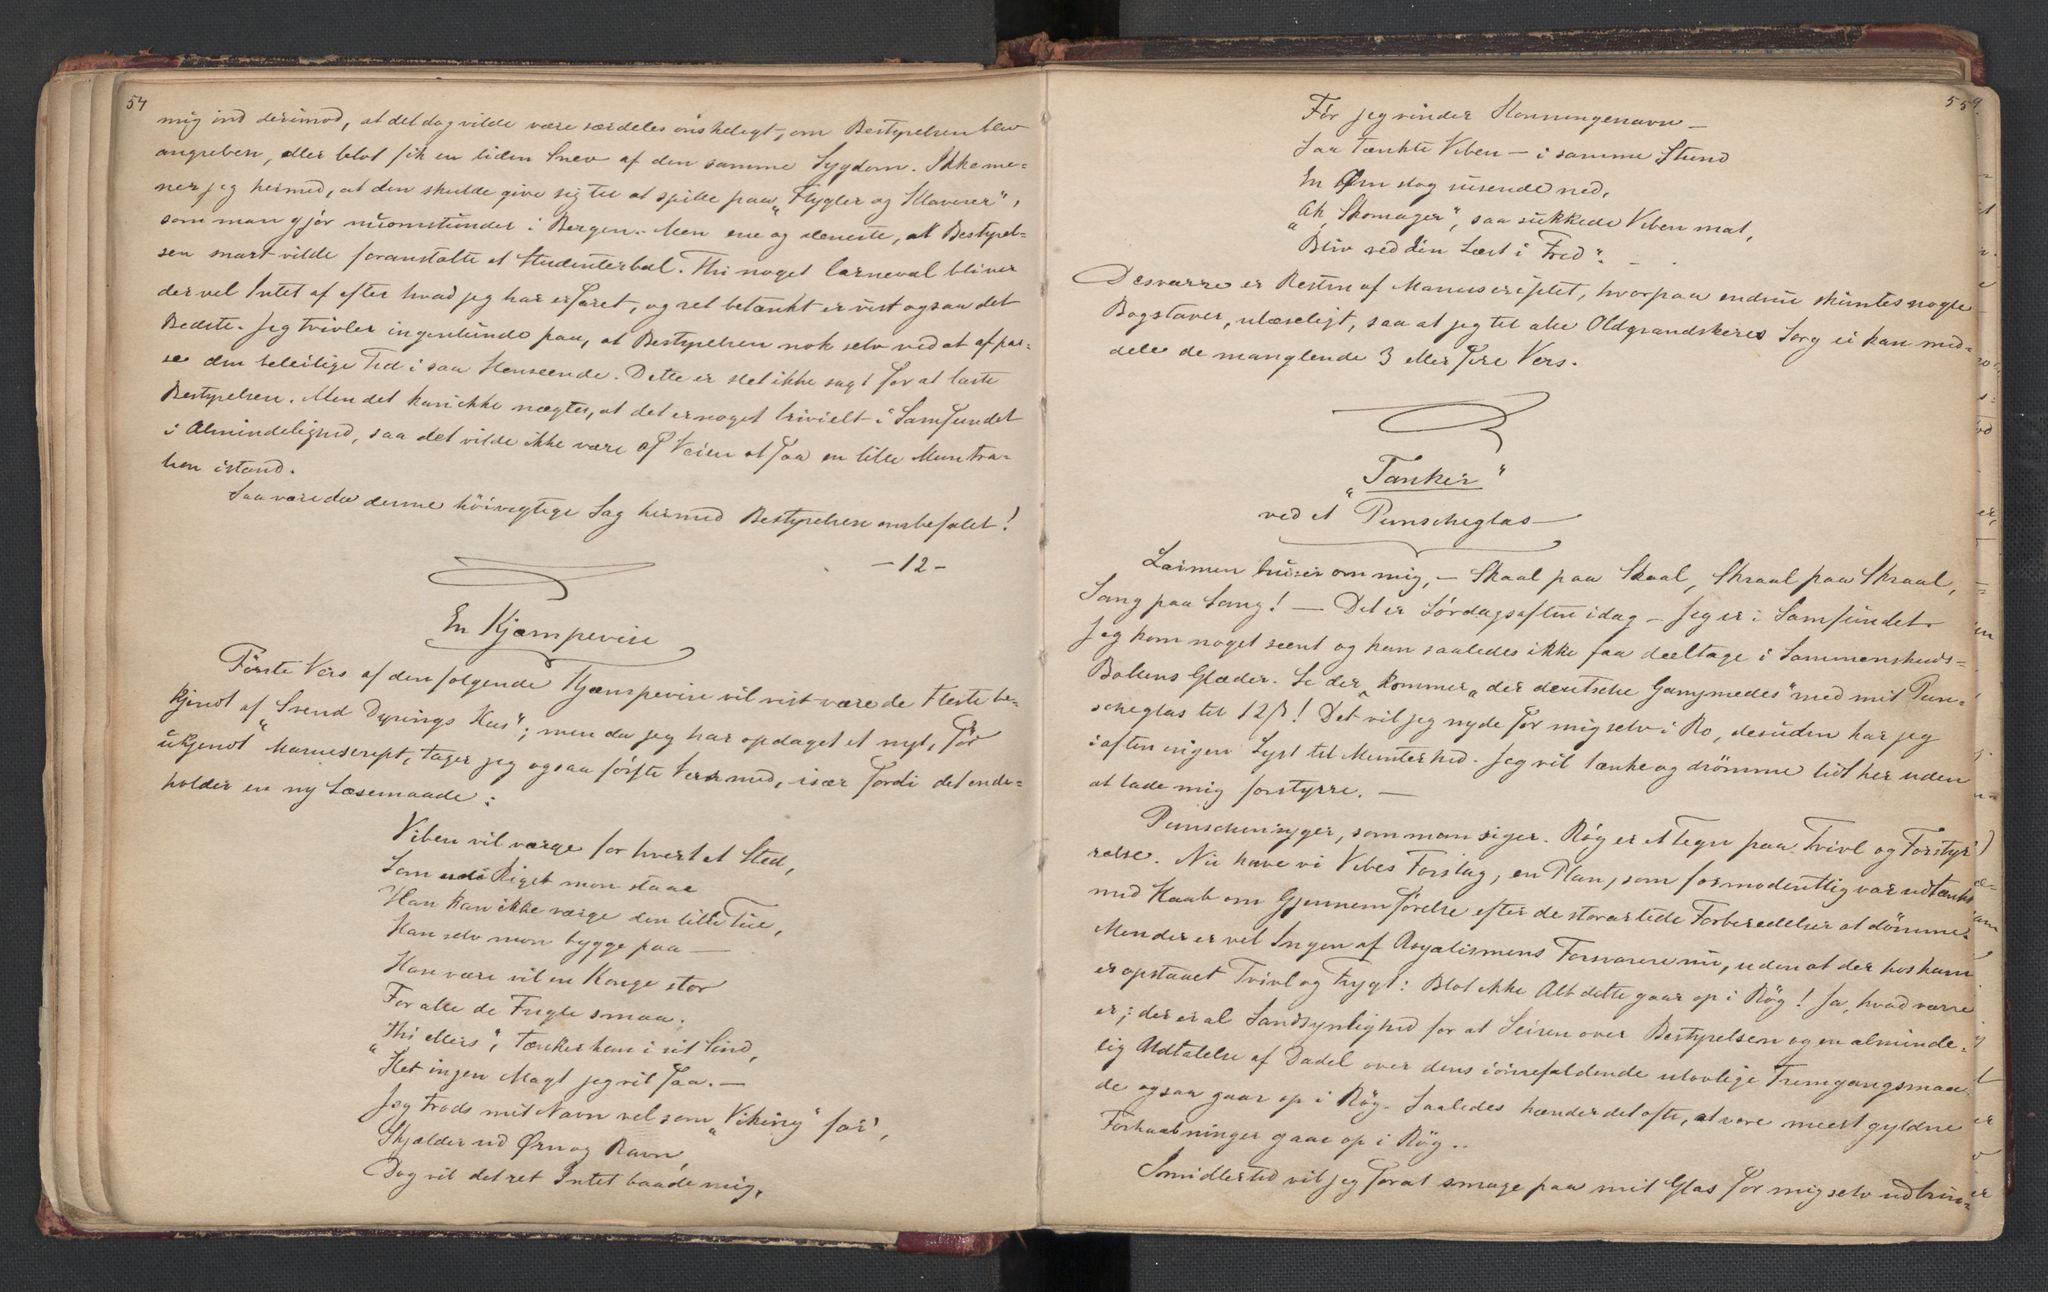 54
mig ind derimod, at det dog vilde være særdeles ønskeligt, om Bestyrelsen blev
angreben, eller blot fik en liden Snev af den samme Sygdom. Ikke me-
ner jeg hermed, at den skulde give sig til at spille paa „Flygler og Klaverer",
som man gjör nuomstunder i Bergen. Men ene og aleneste, at Bestyrel-
sen snart vilde foranstalte et Studenterbal. Thi noget Carneval bliver
der vel Intet af efter hvad jeg har erfaret, og ret betænkt er vist ogsaa det
Bedste. Jeg tvivler ingenlunde paa, at Bestyrelsen nok selv ved at afpas-
se den beleilige Tid i saa Henseende. Dette er slet ikke sagt for at laste
Bestyrelsen. Men det kan ikke nægtes, at det er noget trivielt i Samfundet
i Almindelighed, saa det vilde ikke være af Veien at faa en lille Muntra-
tion istand.
Saa være da denne höivigtige Sag hermed Bestyrelsen anbefalet!
-12-
En Kjæmpevise
Første Vers af den følgende Kjæmpevise vil vist være de Fleste be-
kjendt af „Svend Dyrings Hus"; men da jeg har opdaget et nyt, för
ukjendt Manuscript, tager jeg ogsaa første Vers med, især fordi det inde-
holder en ny Læsemaade:
Viben vil værge for hvert et Sted,
Som udi Riget mon staae
Han kan ikke værge den lille Tue,
Han selv mon bygge paa —
Han være vil en Konge stor
For alle de Fugle smaa.
„Thi ellers", tænker han i sit Sind,
„Slet ingen Magt jeg vil faa. —
Jeg trods mit Navn vel som „Viking" foer,
Skjælder ud Ørn og Ravn,
Dog vil det ret Intet baade mig,
559.
Før jeg vinder Konningenavn —
Saa tænkte Viben — i samme Stund
En Ørn slog susende ned,
„Ak, Skomager", saa sukkede Viben mat,
„Bliv ved din Læst i Fred".
Desværre er Resten af Manuscriptet, hvorpaa endnu skimtes nogle
Bogstaver, ulæseligt, saa at jeg til alle Oldgrandskeres Sorg ei kan med-
dele de manglende 3 eller fire Vers.
„Tanker"
ved et Punscheglas
Larmen bruser om mig, — Skaal paa Skaal, Skraal paa Skraal,
Sang paa Sang! — Det er Lördagsaften idag — Jeg er i Samfundet
Jeg kom noget seent og kan saaledes ikke faa deeltage i Sammenskuds-
Bollens Glæder. Se der kommer „der deutsche Ganymedes" med mit Pun-
scheglas til 12 ß! Det vil jeg nyde for mig selv i Ro, desuden har jeg
iaften ingen Lyst til Munterhed. Jeg vil tænke og drömme lidt her uden
at lade mig forstyrre. —
Punschen ryger, som man siger. Røg er et Tegn paa Tvivl og Forstyr-
relse. Nu have vi Vibes Forslag, en Plan, som formodentlig var udtænkt
med Haab om Gjennemførelse efter de storartede Forberedelser at dömme.
Men der er vel Ingen af Royalismens Forsvarere nu, uden at der hos ham
er opstaaet Tvivl og Frygt: Blot ikke Alt dette gaar op i Røg! Ja, hvad værre
er; der er al Sandsynlighed for at Seiren over Bestyrelsen og en alminde-
lig Udtalelse af Dadel over dens iöinefaldende ulovlige Fremgangsmaa-
de ogsaa gaar op i Røg. Saaledes hænder det ofte, at vore meest gyldne
Forhaabninger gaae op i Røg..
Imidlertid vil jeg for at smage paa mit Glas for mig selv udbrin-